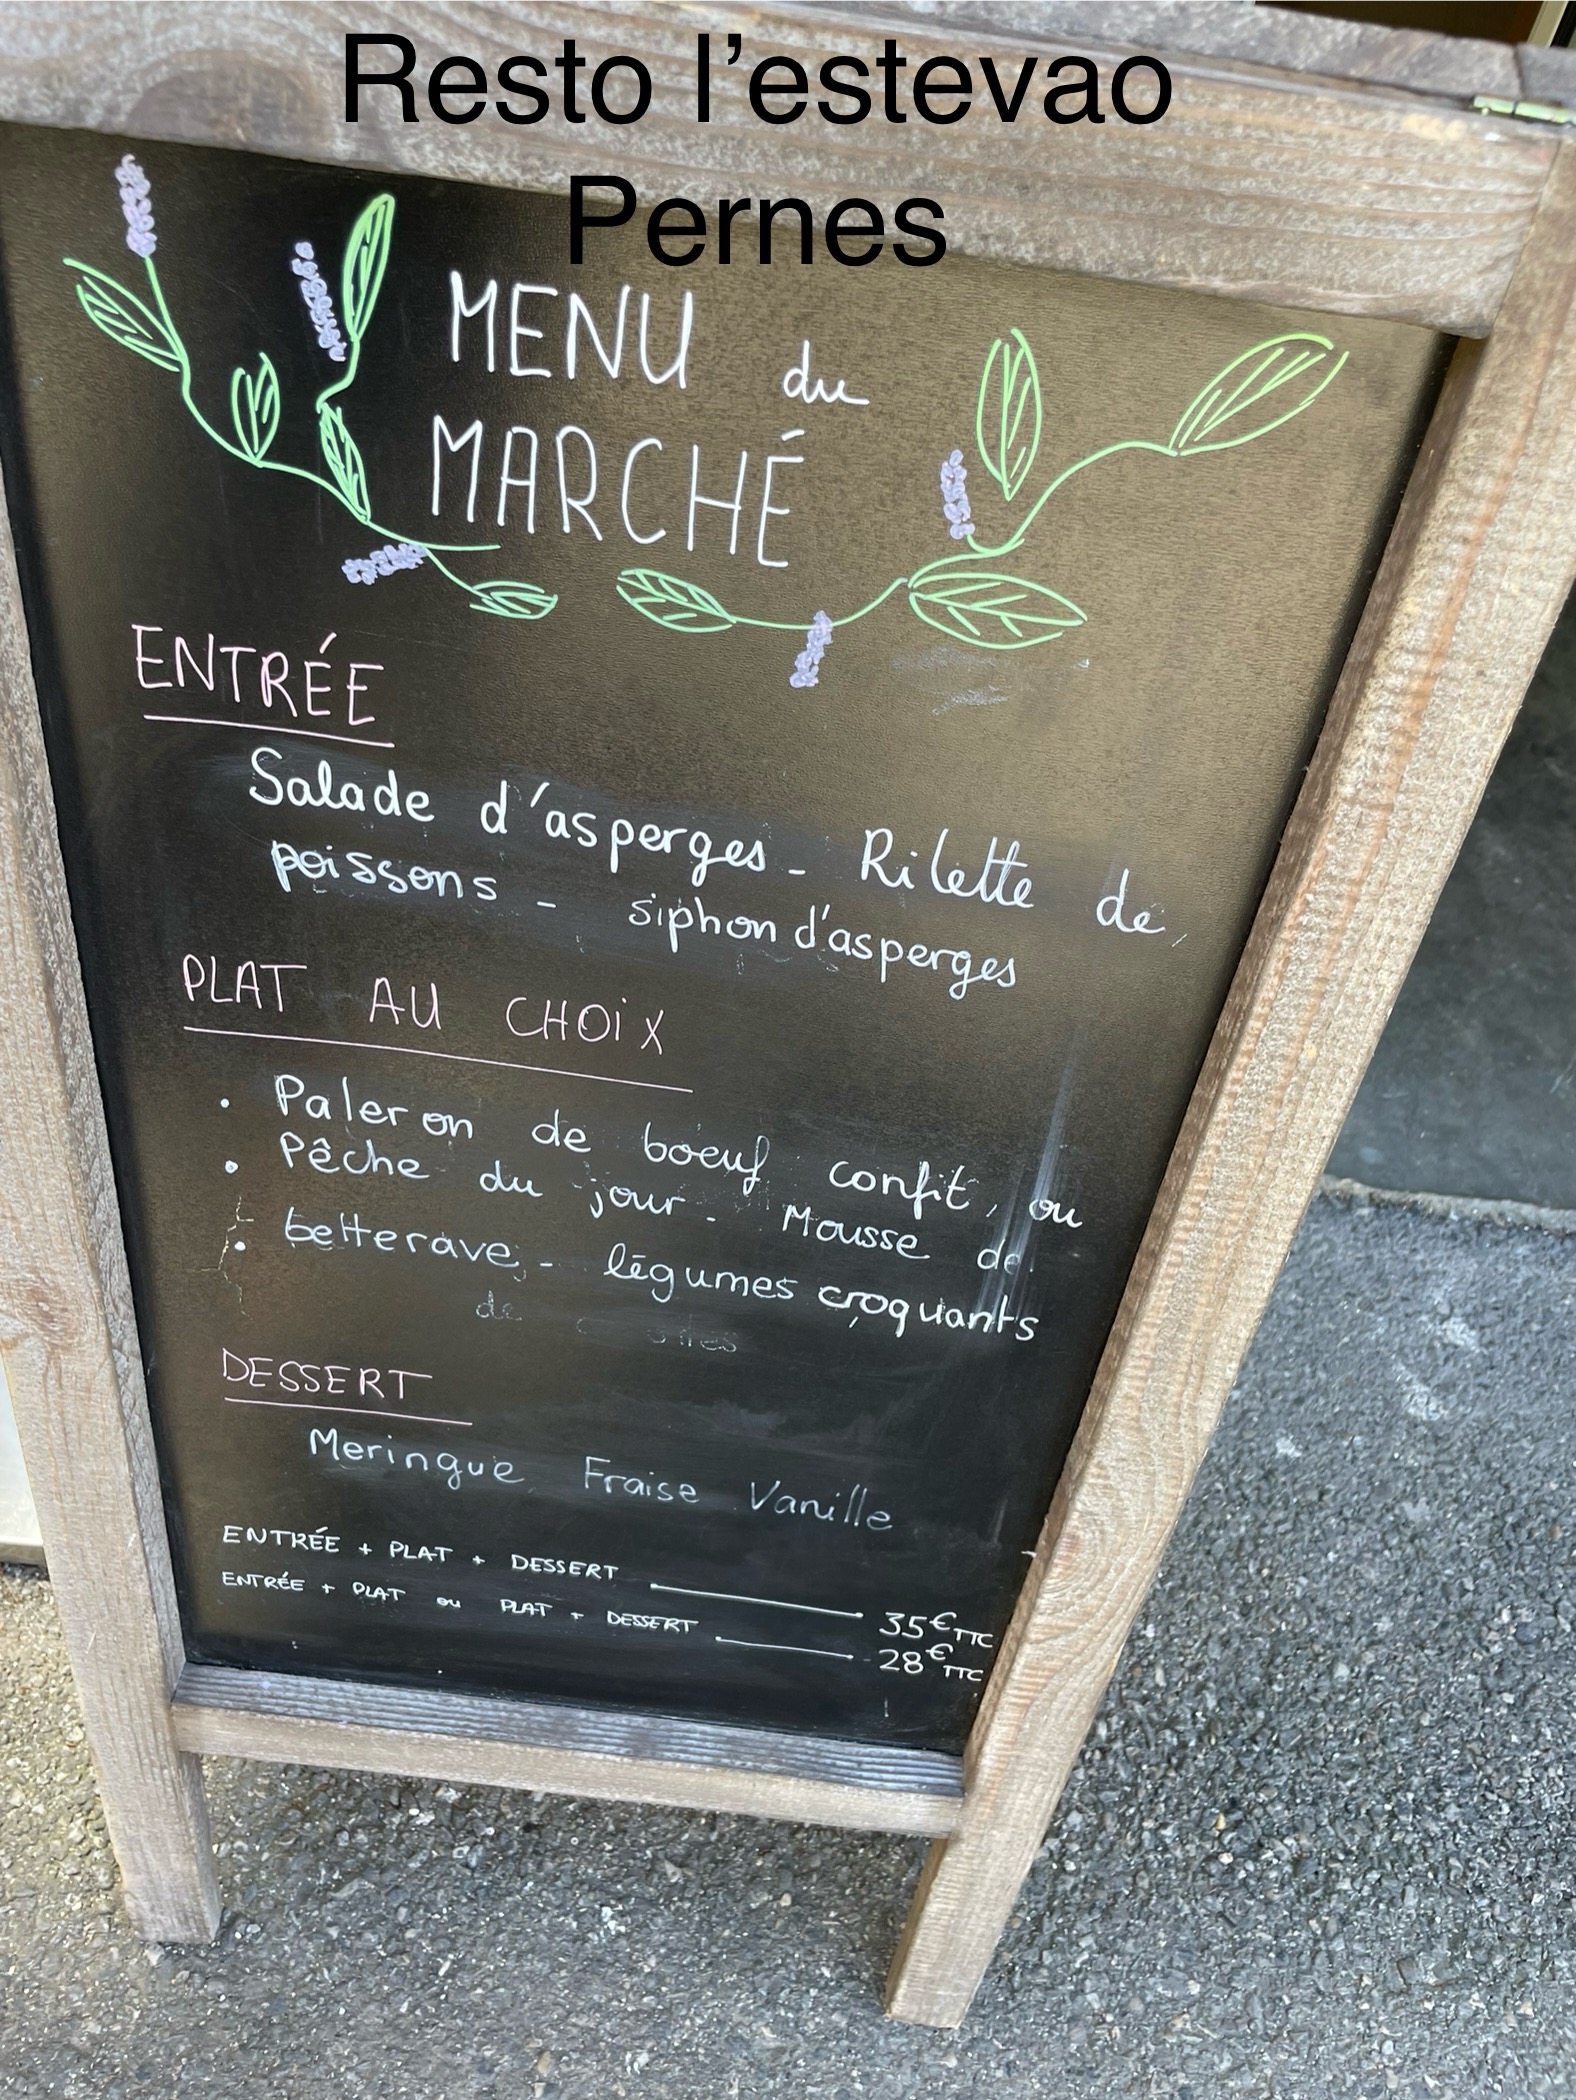 Resto l’estevao
Pernes
MENU du
MARCHÉ
ENTRÉE
Salade d'asperges - Rilette de
poissons - siphon d'asperges
PLAT AU CHOIX
• Paleron de boeuf confit, ou
• Pêche du jour. Mousse de
• betterave - légumes croquants
de
DESSERT
Meringue Fraise Vanille
ENTRÉE + PLAT + DESSERT 35€ TTC
ENTRÉE + PLAT ou PLAT + DESSERT 28€ TTC